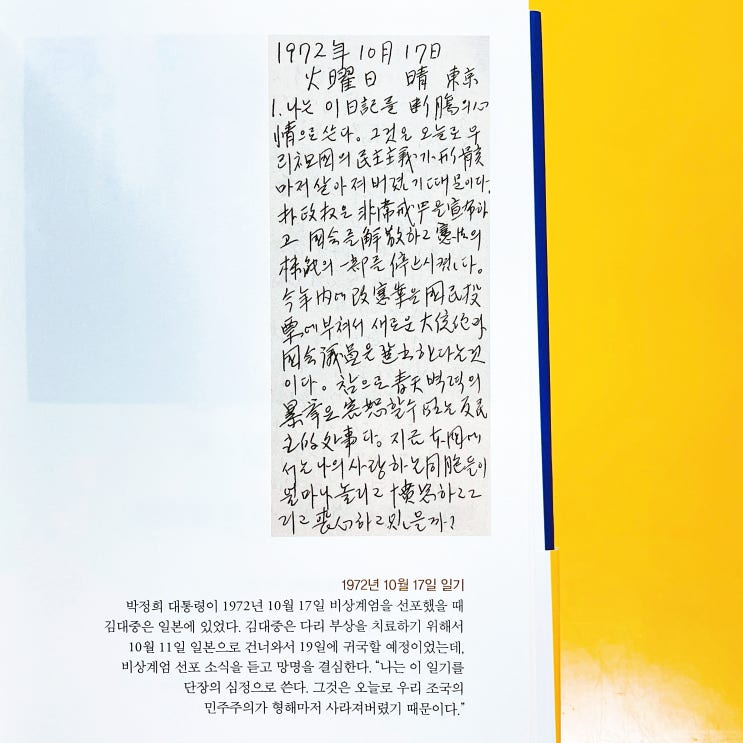 1972年 10月 17日
火曜日 晴 東京
1. 나는 이 日記를 断腸의 心
情으로 쓴다. 그것은 오늘로 우
리 祖国의 民主主義가 形骸
마저 살아져 버렸기 때문이다.
朴政权은 非常戒严을 宣布하
고 国会를 解散하고 憲法의
機能의 一部를 停止시켰다.
今年内에 改憲案을 国民投
票에 부쳐서 새로운 大統領과
国会議員을 選出한다는 것
이다. 참으로 青天벽력의
暴挙요 容恕할 수 없는 反民
主的 处事다. 지금 本国에
서는 나의 사랑하는 同胞들이
얼마나 놀라고 憤怒하고 그
리고 喪心하고 있을까?
1972년 10월 17일 일기
박정희 대통령이 1972년 10월 17일 비상계엄을 선포했을 때
김대중은 일본에 있었다. 김대중은 다리 부상을 치료하기 위해서
10월 11일 일본으로 건너와서 19일에 귀국할 예정이었는데,
비상계엄 선포 소식을 듣고 망명을 결심한다. “나는 이 일기를
단장의 심정으로 쓴다. 그것은 오늘로 우리 조국의
민주주의가 형해마저 사라져버렸기 때문이다.”